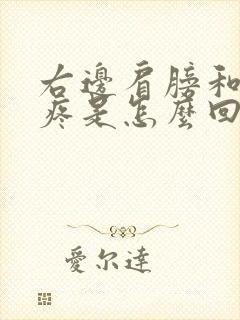 右邊肩膀和
疼是怎麼回
愛尔達